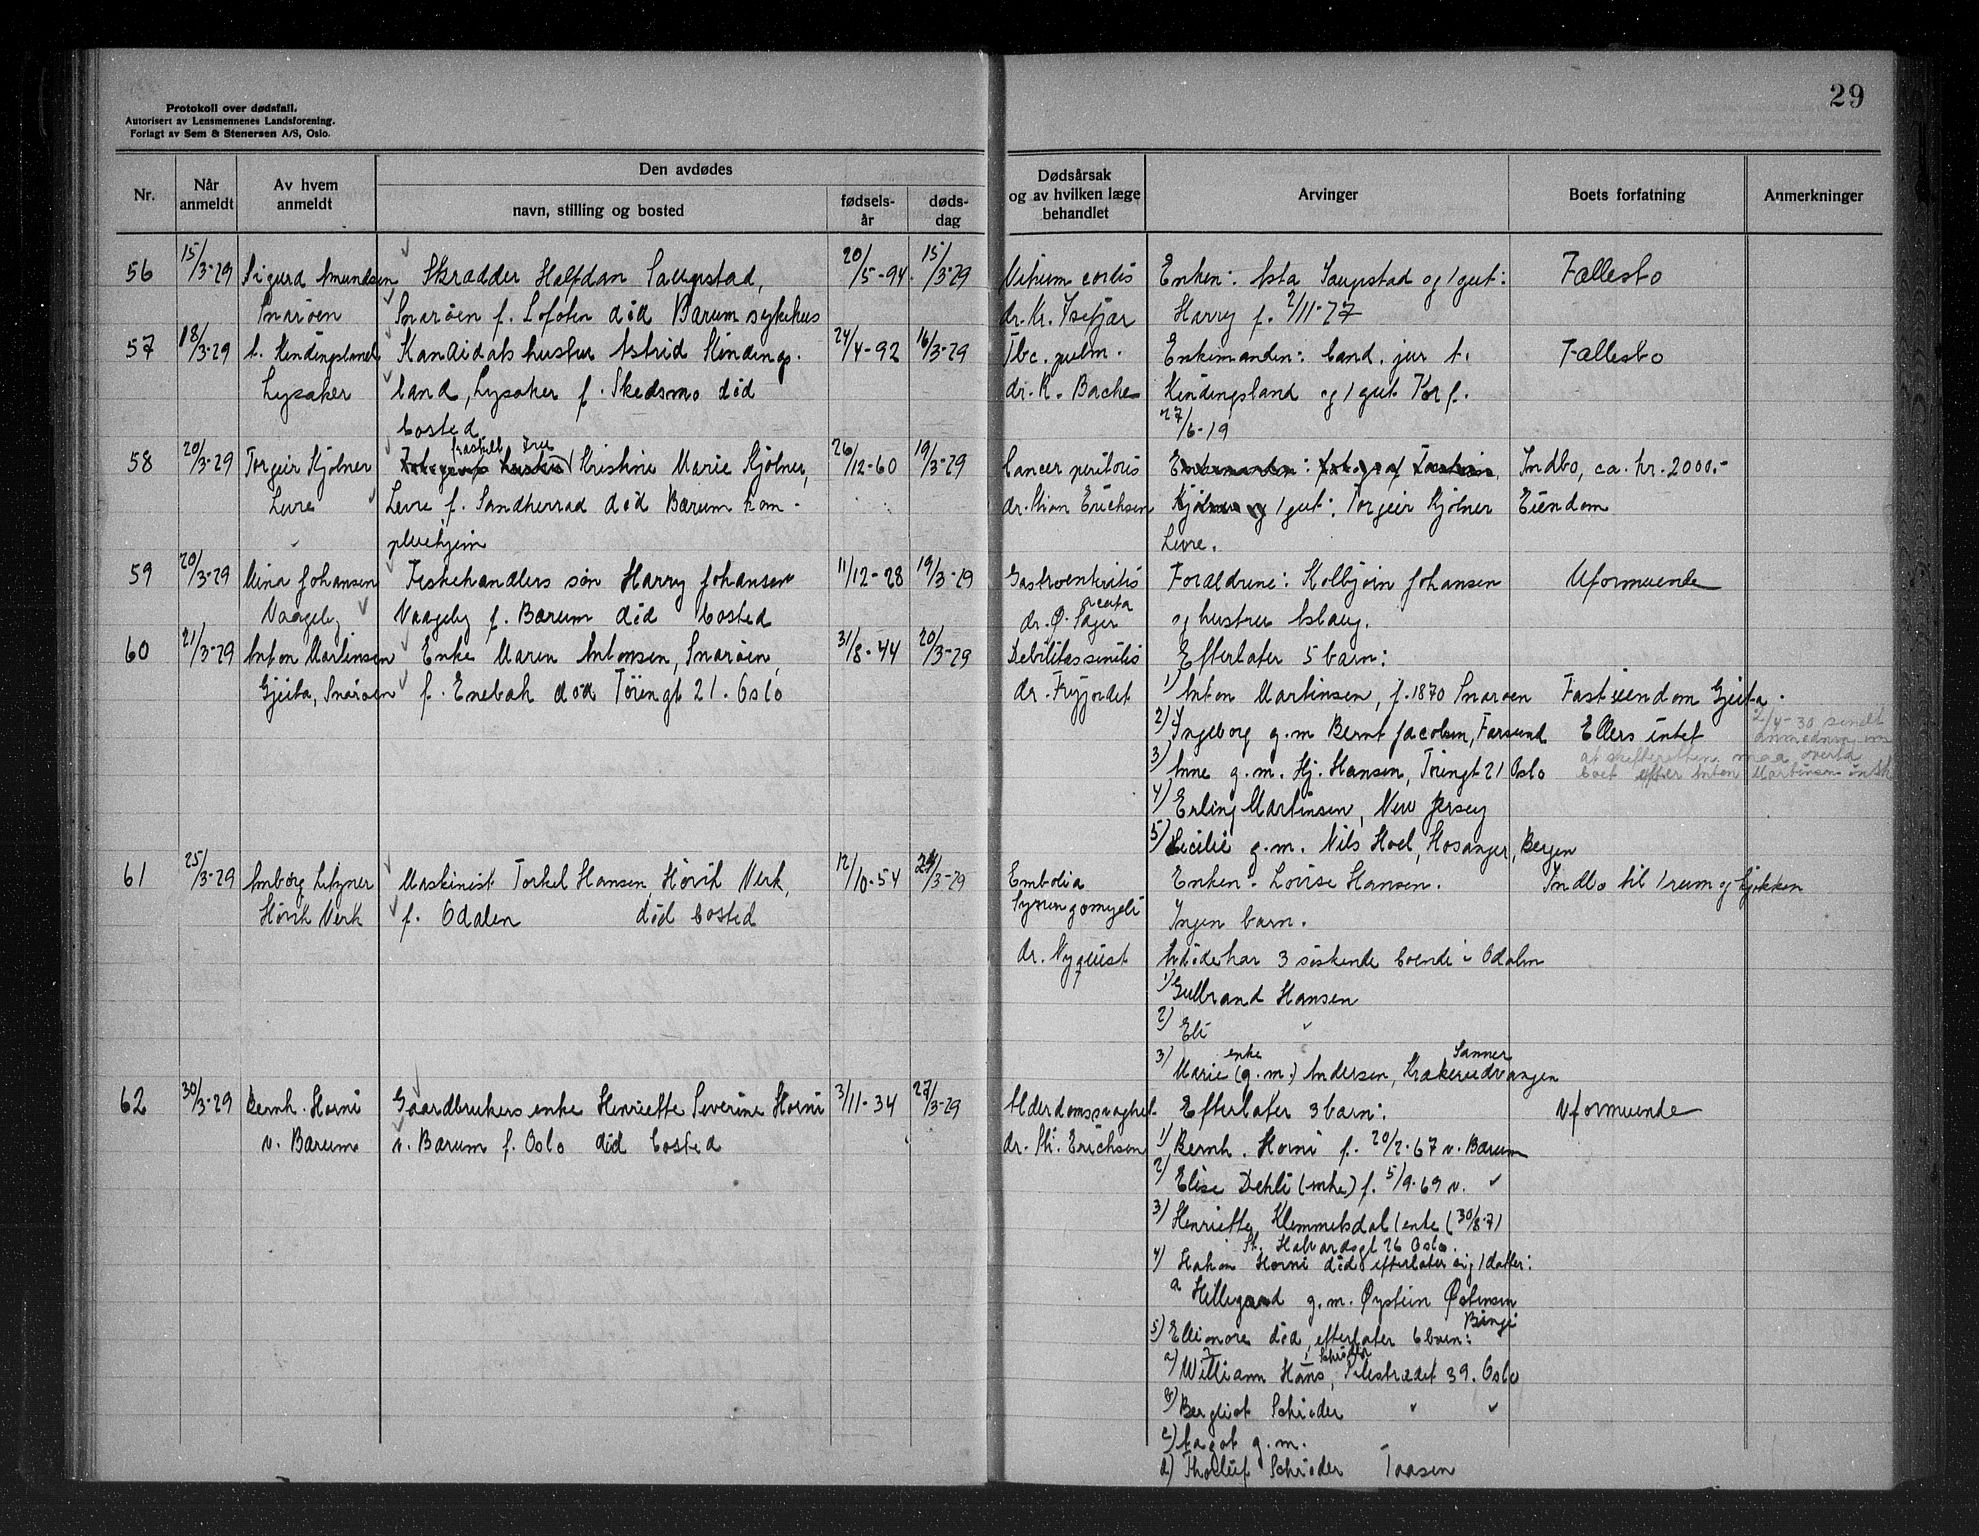 29
Protokoll over dødsfall.
Autorisert av Lensmennenes Landsforening.
Forlagt av Sem & Stenersen A/S, Oslo.
Nr.
Når anmeldt
Av hvem anmeldt
Den avdødes
navn, stilling og bosted
fødsels-år
døds-dag
Dødsårsak og av hvilken læge behandlet
Arvinger
Boets forfatning
Anmerkninger
56 15/3-29 Sigurd Amundsen Skrædder Halfdan Saupstad, 20/5-94. 15/3-29 Vitium cordis Enken: Asta Saupstad og 1 gut: Fællesbo
Snarøen Snarøen f. Lofoten död Bærum sykehus dr. Kr. Isefjær Harry f. 2/11-27
57 18/3-29 Kindingsland Kandidats hustru Astrid Kindings- 24/4-92 16/3-29 Tbc. pulm. Enkemanden: Cand. jur Fællesbo
Lysaker land, Lysaker f. Skedsmo död dr. K. Bache Kindingsland og 1 gut Tor f.
bosted 27/6-19
58 20/3-29 Torgeir Kjölner fraskilt Frue Kristine Marie Kjölner, 26/12-60 19/3-29 Cancer peritoris Enkemanden: fotograf Indbo, ca. kr. 2000.-
Levre Levre f. Sandherrad död Bærum kom- dr. Stian Erichsen Kjölner og 1 gut: Torgeir Kjölner Eiendom
pleiehjem Levre.
59 20/3-29 Mina Johansen Fiskehandlers sön Harry Johansen 11/12-28 19/3-29 Gastroenteritis acuta Forældrene: Kolbjörn Johansen Uformuende
Vaageby Vaageby f. Bærum död bosted dr. Ø. Sager og hustru Aslaug.
60 21/3-29 Anton Martinsen Enke Maren Antonsen, Snarøen, 31/8-44 20/3-29 Debilitas senilis Efterlater 5 barn:
Gjeita, Snarøen f. Enebak död Töiengt 21. Oslo dr. Fryjordet 1) Anton Martinsen, f. 1870 Snarøen Fast eiendom Gjeita.
2) Ingeborg g.m. Bernt Jacobsen, Farsund Ellers intet 2/4-30 sendt
3) Anne g.m. Hj. Hansen, Töiengt 21 Oslo at skifteretten maa overta
boet efter Anton Martinsen
4) Erling Martinsen, New Jersey
5) Cecilie g.m. Nils Hoel, Hosanger, Bergen
61 25/3-29 Amborg Hövik Verk Maskinist Torkel Hansen Hövik Verk, 12/10-54 24/3-29 Embolia Enken: Lovise Hansen. Indbo til 1 rum og kjökken
f. Odalen död bosted Syringomyeli Ingen barn.
dr. Nyquist Avdöde har 3 söskende boende i Odalen
1) Gulbrand Hansen
2) Eli "
3) Marie enke (g.m.) Andersen, Sanner Krakerudvangen
62 30/3-29 Bernh. Horni Gaardbrukers enke Henriette Severine Horni 3/11-34 27/3-29 Alderdomssvaghet Efterlater 3 barn: Uformuende
v. Bærum v. Bærum f. Oslo död bosted dr. St. Erichsen 1) Bernh. Horni f. 20/2-67 v. Bærum
2) Elise Dehli (enke) f. 5/9-69 v. "
3) Henriette Klemmetsdal (enke (30/8-71)
St. Halvardsgt 26 Oslo.
4) Hakon Horni död efterlater sig 1 datter:
a Hillegaard g.m. Øystein Østensen
5) Elionore död, efterlater 6 barn:
a) William Hans Schröder, Pilestrædet 39. Oslo
b) Bergliot Schröder " "
c) Dagot g.m.
d) Thorleif Schröder Taasen